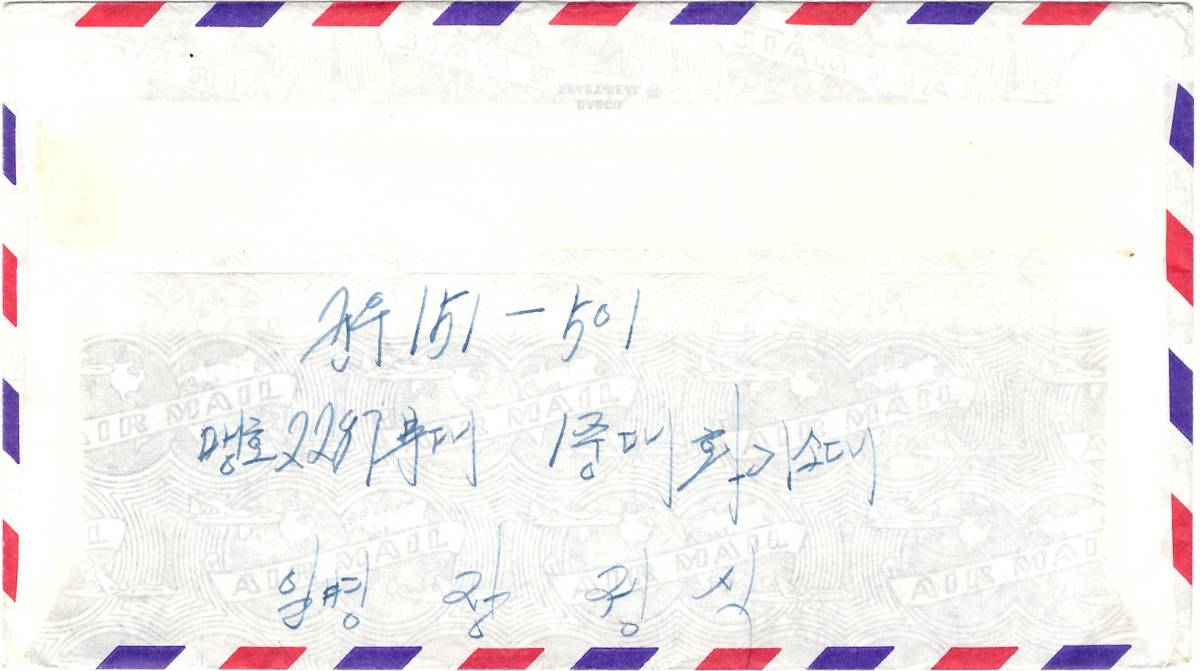 군우 151-501
맹호 2287부대 1중대 화기소대
일병 장 정 식
AIR MAIL
AIR MAIL
AIR MAIL
AIR MAIL